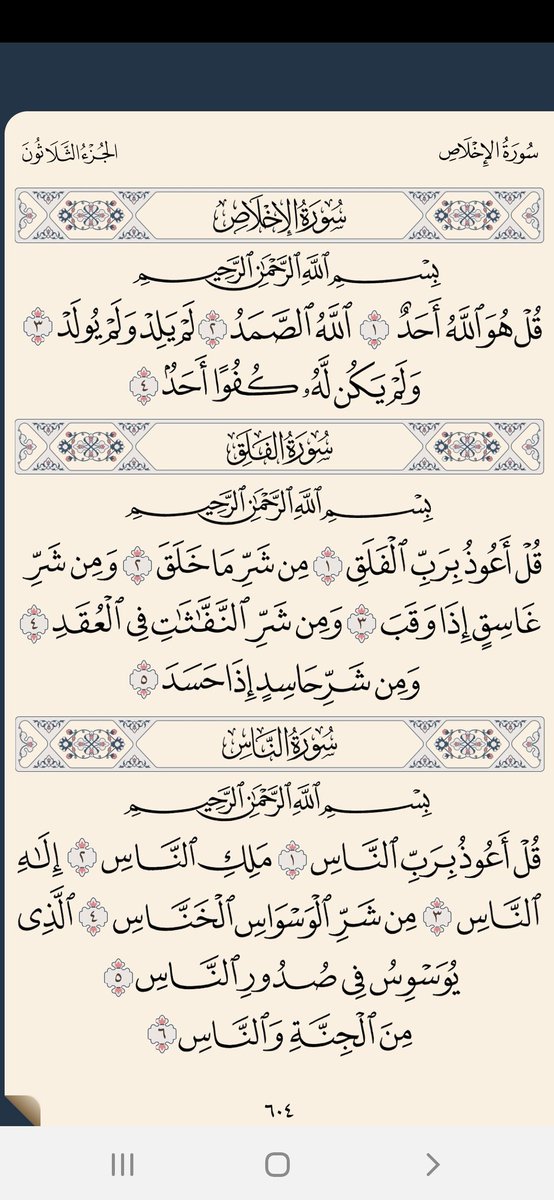 سُورَةُ الإِخْلَاصِ الجُزْءُ الثَّلَاثُونَ
سُورَةُ الإِخْلَاصِ
بِسْمِ ٱللَّهِ ٱلرَّحْمَٰنِ ٱلرَّحِيمِ
قُلْ هُوَ ٱللَّهُ أَحَدٌ ١ ٱللَّهُ ٱلصَّمَدُ ٢ لَمْ يَلِدْ وَلَمْ يُولَدْ ٣
وَلَمْ يَكُن لَّهُۥ كُفُوًا أَحَدٌۢ ٤
سُورَةُ الفَلَقِ
بِسْمِ ٱللَّهِ ٱلرَّحْمَٰنِ ٱلرَّحِيمِ
قُلْ أَعُوذُ بِرَبِّ ٱلْفَلَقِ ١ مِن شَرِّ مَا خَلَقَ ٢ وَمِن شَرِّ
غَاسِقٍ إِذَا وَقَبَ ٣ وَمِن شَرِّ ٱلنَّفَّٰثَٰتِ فِي ٱلْعُقَدِ ٤
وَمِن شَرِّ حَاسِدٍ إِذَا حَسَدَ ٥
سُورَةُ النَّاسِ
بِسْمِ ٱللَّهِ ٱلرَّحْمَٰنِ ٱلرَّحِيمِ
قُلْ أَعُوذُ بِرَبِّ ٱلنَّاسِ ١ مَلِكِ ٱلنَّاسِ ٢ إِلَٰهِ
ٱلنَّاسِ ٣ مِن شَرِّ ٱلْوَسْوَاسِ ٱلْخَنَّاسِ ٤ ٱلَّذِي
يُوَسْوِسُ فِي صُدُورِ ٱلنَّاسِ ٥
مِنَ ٱلْجِنَّةِ وَٱلنَّاسِ ٦
٦٠٤